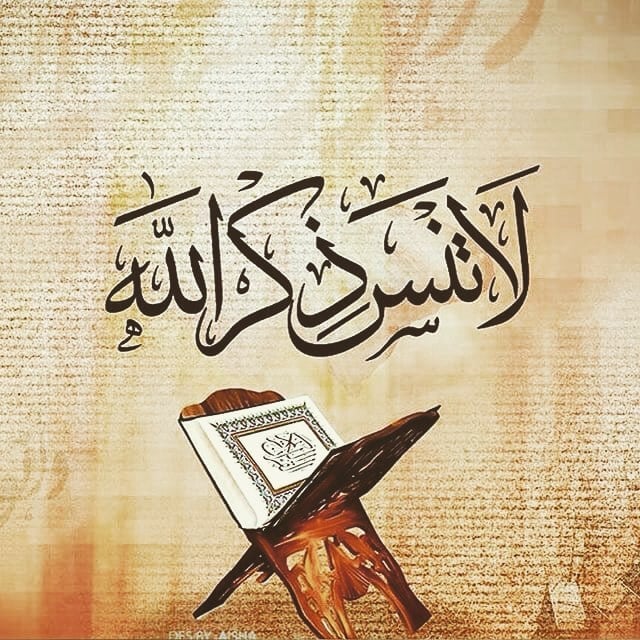 لَا تَنسَ ذِكرَ اللَّه
DES BY AISHA